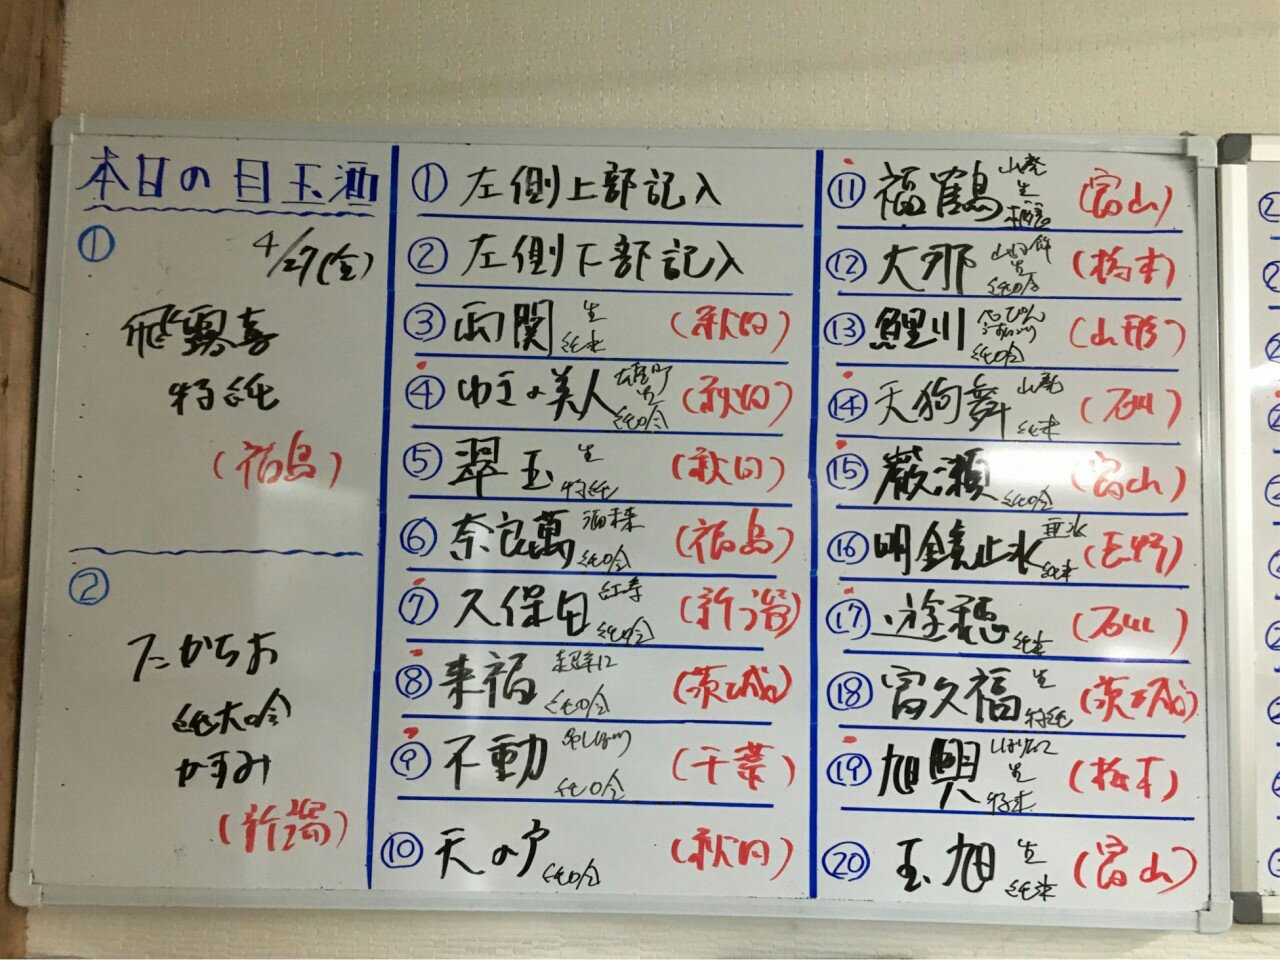 本日の目玉酒
①
4/27(金)
飛露喜
特純
(福島)
②
たかちよ
純大吟
かすみ
(新潟)
① 左側上部記入
② 左側下部記入
③ 両関 生 純米 (秋田)
④ ゆきの美人 雄町 生 純吟 (秋田)
⑤ 翠玉 生 特純 (秋田)
⑥ 奈良萬 酒未来 純吟 (福島)
⑦ 久保田 紅寿 純吟 (新潟)
⑧ 来福 超辛口 純吟 (茨城)
⑨ 不動 吊しぼり 純吟 (千葉)
⑩ 天の戸 純吟 (秋田)
⑪ 福鶴 山廃 生 (富山)
⑫ 大那 生 純吟 (栃木)
⑬ 鯉川 純吟 (山形)
⑭ 天狗舞 山廃 純米 (石川)
⑮ 厳瀬 純吟 (富山)
⑯ 明鏡止水 垂氷 純米 (長野)
⑰ 遊穂 純米 (石川)
⑱ 富久福 生 特純 (茨城)
⑲ 旭興 生 特米 (栃木)
⑳ 玉旭 生 純米 (富山)